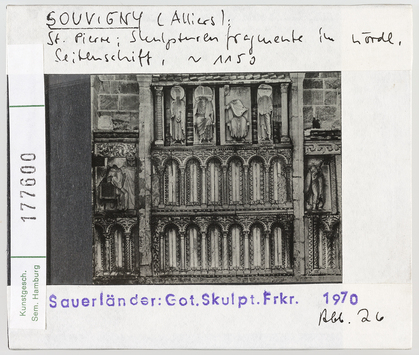 SOUVIGNY (Alliers);
St. Pierre; Skulpturenfragmente im nördl.
Seitenschiff, ~ 1150
177600
Kunstgesch.
Sem. Hamburg
Sauerländer: Got. Skulpt. Frkr. 1970
Abb. 26